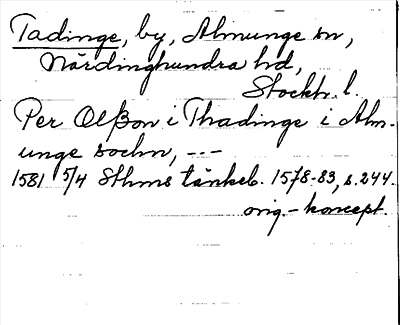 Tadinge, by, Almunge sn,
Närdinghundra hd,
Stockh. l.
Per Olßon i Thadinge i Alm-
unge sochn, -.-
1581 5/4 Sthms tänkeb. 1578-83, s. 244.
orig.-koncept.